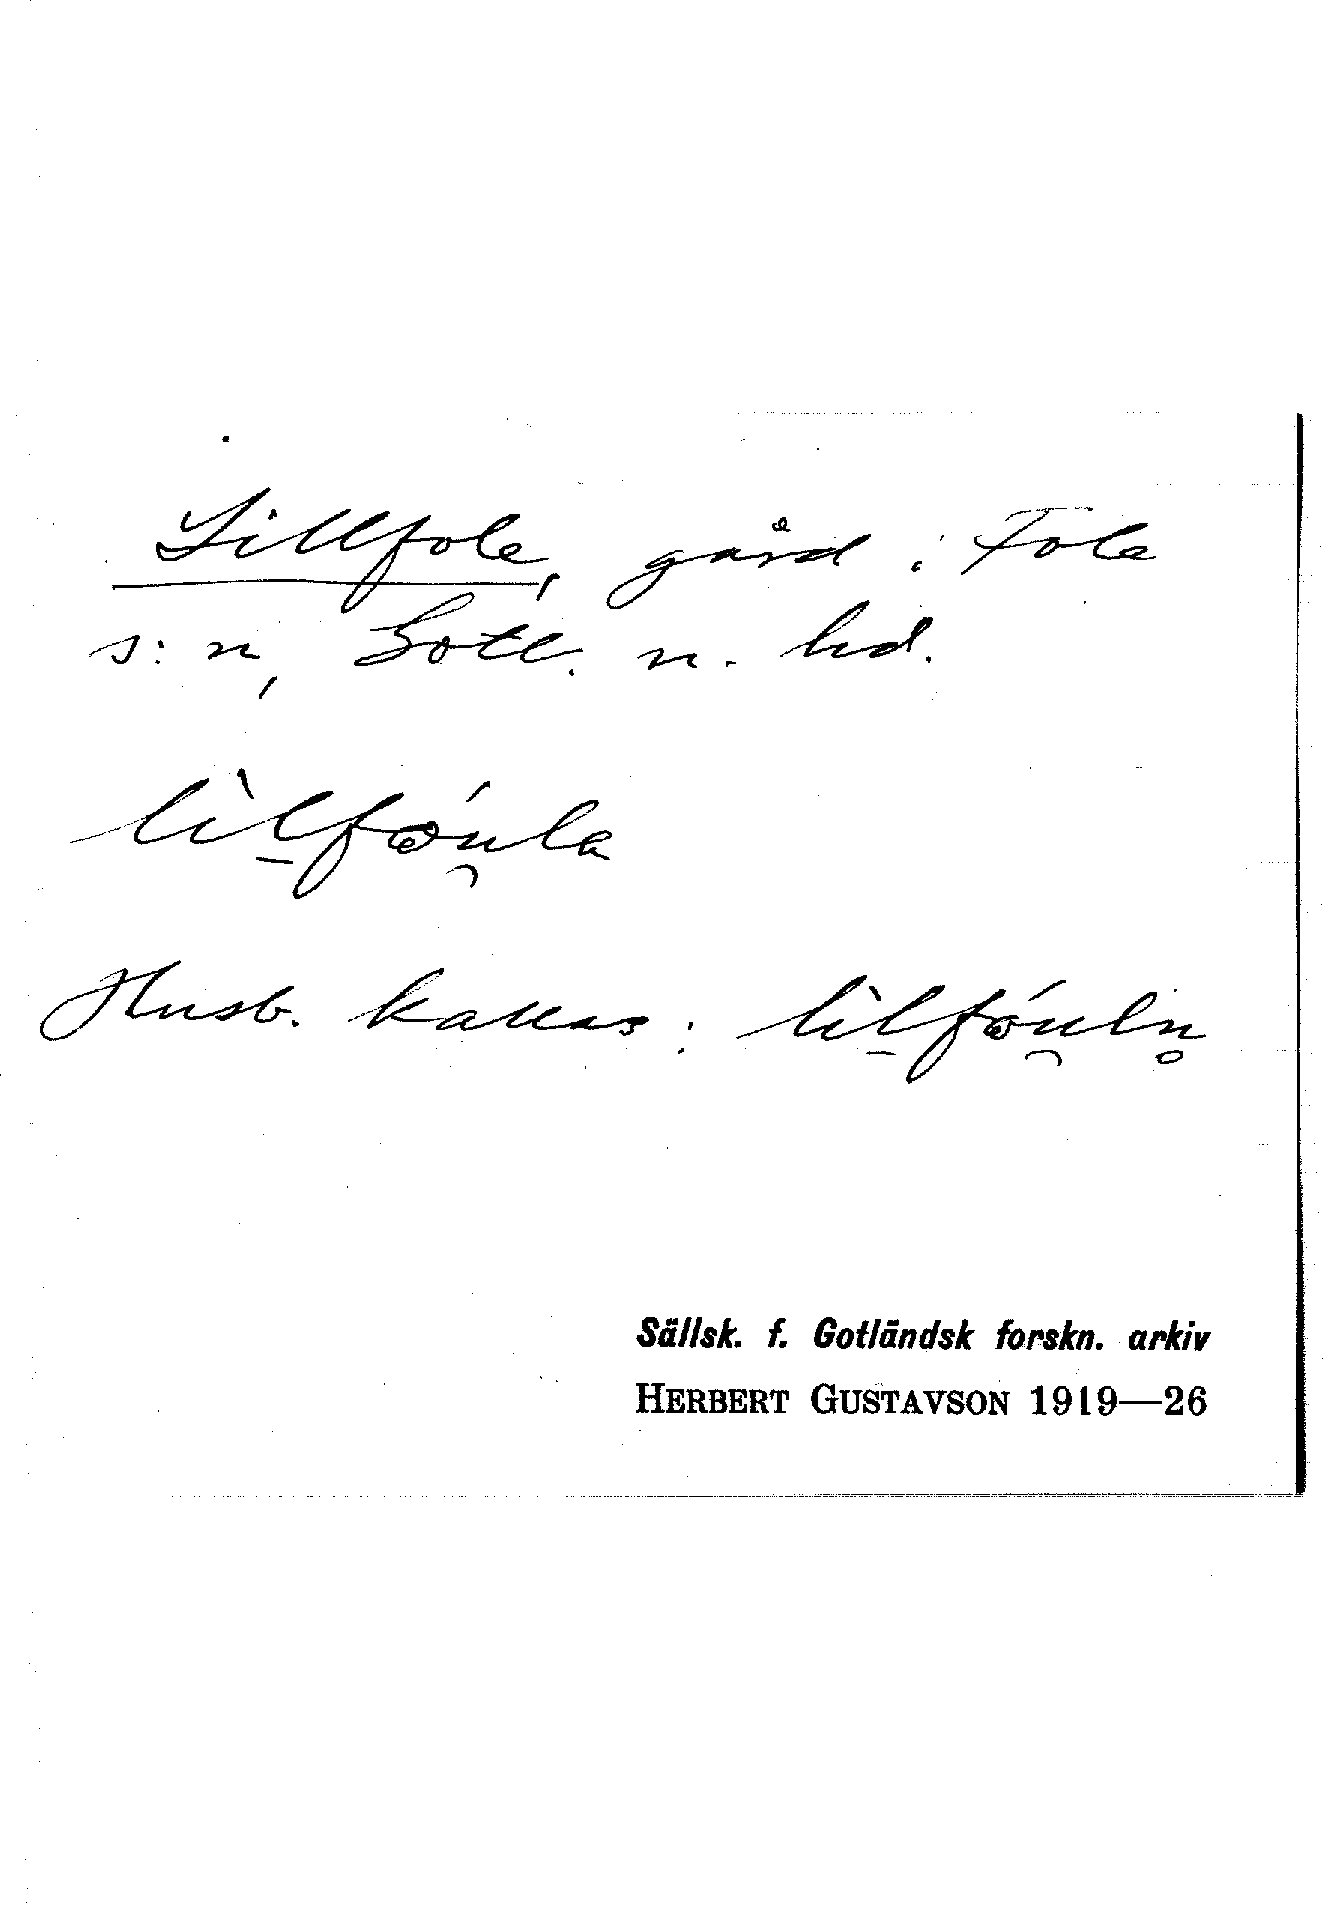 Lillfole, gård i Fole
s:n, Gotl. n. hd.
lìl̠fóu̯la
Husb. kallas: lìl̠fóu̯ln̥
Sällsk. f. Gotländsk forskn. arkiv
HERBERT GUSTAVSON 1919—26